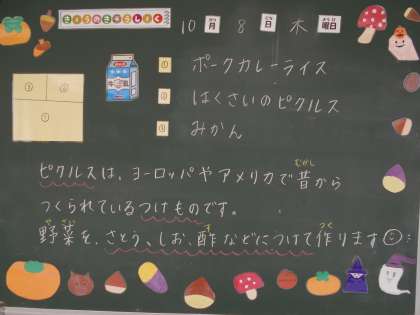 きょうのきゅうしょく
10月8日木曜日
① ポークカレーライス
② はくさいのピクルス
③ みかん
ピクルスは、ヨーロッパやアメリカで昔から
つくられているつけものです。
野菜を、さとう、しお、酢などにつけて作ります